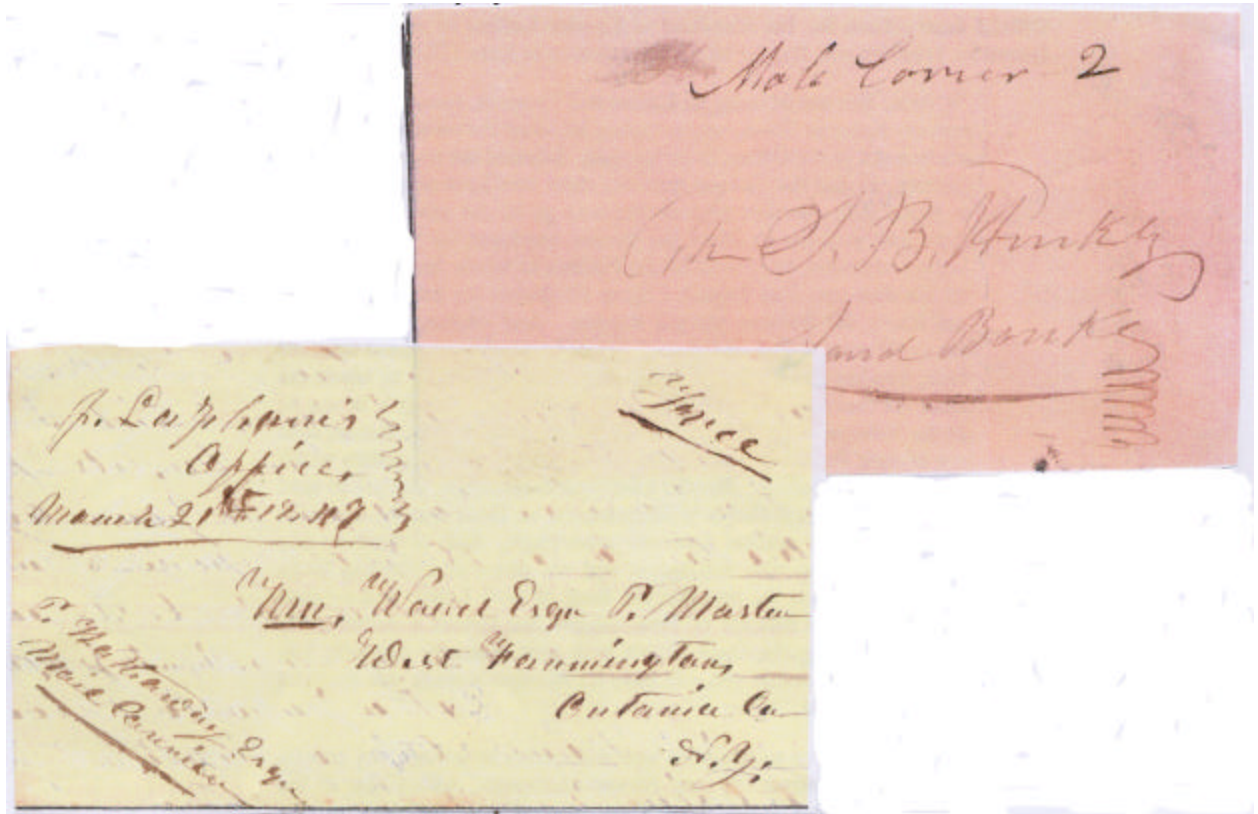 Male Corner 2
S. B. Hinkly
Sand Banks
J. Laphams
Office,
March 21st 1847
Free
Wm. Esqr P. Master
West Farmington,
Ontario Co
N.Y.
P. Hathaway Esqr
Mail Carrier